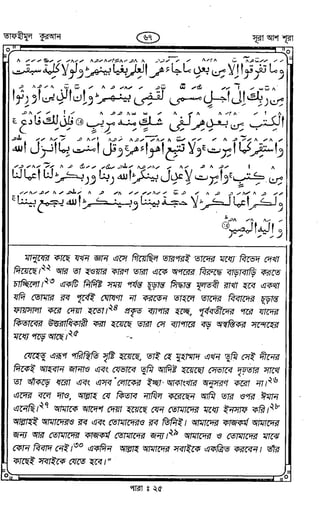 তাফহীমুল কুরআন
৬৭
সূরা আশ শূরা
وَمَا تَفَرَّقُوٓا إِلَّا مِنۢ بَعْدِ مَا جَآءَهُمُ الْعِلْمُ بَغْيًۢا بَيْنَهُمْ ۚ وَلَوْلَا كَلِمَةٌ سَبَقَتْ
مِنْ رَّبِّكَ إِلَىٰٓ أَجَلٍ مُّسَمًّى لَّقُضِىَ بَيْنَهُمْ ۚ وَإِنَّ الَّذِينَ أُورِثُوا
الْكِتٰبَ مِنۢ بَعْدِهِمْ لَفِى شَكٍّ مِّنْهُ مُرِيبٍ ۝ فَلِذٰلِكَ فَادْعُ ۚ
وَاسْتَقِمْ كَمَآ أُمِرْتَ ۚ وَلَا تَتَّبِعْ أَهْوَآءَهُمْ ۚ وَقُلْ اٰمَنتُ بِمَآ أَنزَلَ اللهُ
مِنْ كِتٰبٍ ۚ وَأُمِرْتُ لِأَعْدِلَ بَيْنَكُمُ ۚ اللهُ رَبُّنَا وَرَبُّكُمْ ۚ لَنَآ أَعْمَالُنَا
وَلَكُمْ أَعْمَالُكُمْ ۚ لَا حُجَّةَ بَيْنَنَا وَبَيْنَكُمُ ۚ اللهُ يَجْمَعُ بَيْنَنَا ۚ
وَإِلَيْهِ الْمَصِيرُ ۝
মানুষের কাছে যখন জ্ঞান এসে গিয়েছিল তারপরই তাদের মধ্যে বিভেদ দেখা
দিয়েছে।২২ আর তা হওয়ার কারণ তারা একে অপরের বিরুদ্ধে বাড়াবাড়ি করতে
চাচ্ছিলো।২৩ একটি নির্দিষ্ট সময় পর্যন্ত চূড়ান্ত সিদ্ধান্ত মুলতবী রাখা হবে একথা
যদি তোমার রব পূর্বেই ঘোষণা না করতেন তাহলে তাদের বিবাদের চূড়ান্ত
ফায়সালা করে দেয়া হতো।২৪ প্রকৃত ব্যাপার হচ্ছে, পূর্ববর্তীদের পরে যাদের
কিতাবের উত্তরাধিকারী করা হয়েছে তারা সে ব্যাপারে বড় অস্বস্তিকর সন্দেহের
মধ্যে পড়ে আছে।২৫
যেহেতু এরূপ পরিস্থিতি সৃষ্টি হয়েছে, তাই হে মুহাম্মাদ এখন তুমি সেই দীনের
দিকেই আহবান জানাও এবং যেভাবে তুমি আদিষ্ট হয়েছো সেভাবে দৃঢ়তার সাথে
তা আঁকড়ে ধরো এবং এসব লোকের ইচ্ছা আকাংখার অনুসরণ করো না।২৬
এদের বলে দাও, আল্লাহ যে কিতাব নাযিল করেছেন আমি তার ওপর ঈমান
এনেছি।২৭ আমাকে আদেশ দেয়া হয়েছে যেন তোমাদের মধ্যে ইনসাফ করি।২৮
আল্লাহই আমাদেরও রব এবং তোমাদেরও রব তিনিই। আমাদের কাজকর্ম আমাদের
জন্য আর তোমাদের কাজকর্ম তোমাদের জন্য।২৯ আমাদের ও তোমাদের মাঝে
কোন বিবাদ নেই।৩০ একদিন আল্লাহ আমাদের সবাইকে একত্রিত করবেন। তাঁর
কাছেই সবাইকে যেতে হবে।"
পারা : ২৫